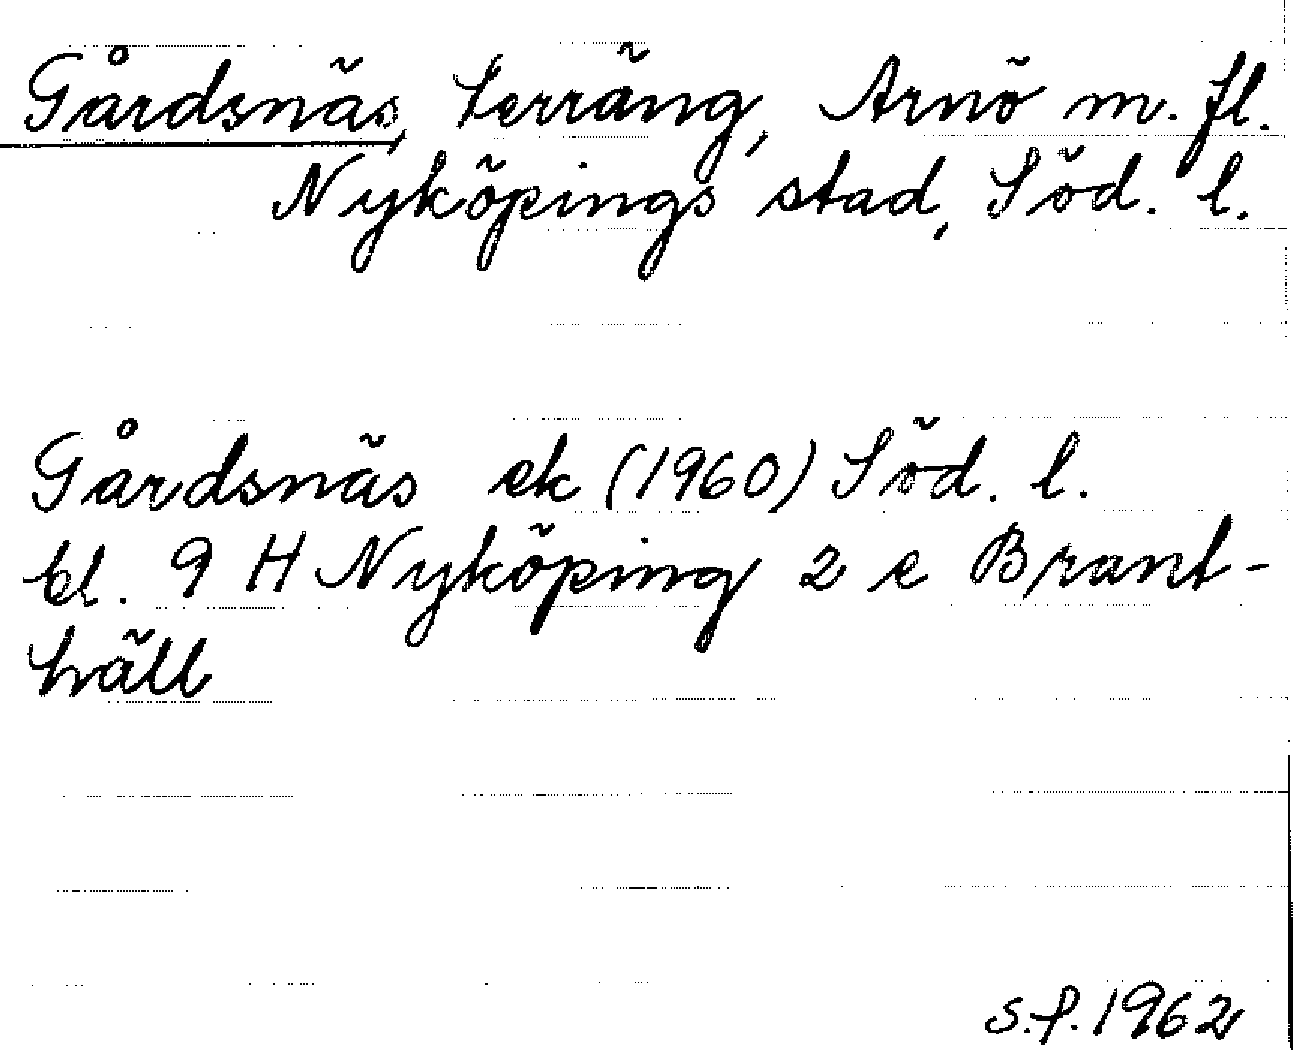 Gårdsnäs, Terräng, Arnö m. fl.
Nyköpings stad, Söd. l.
Gårdsnäs ek (1960) Söd. l.
bl. 9 H Nyköping 2 e Brant-
häll
s.f. 1962